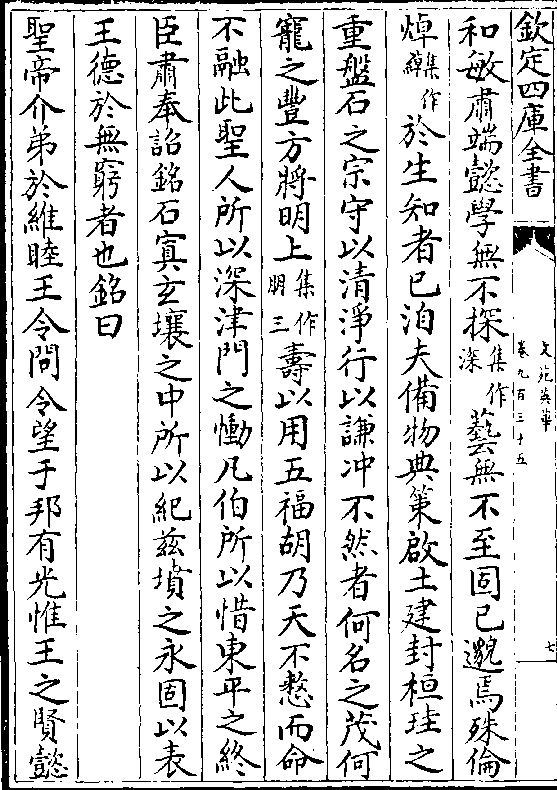 欽定四庫全書
文苑英華
卷九百三十五
七
和敏肅端懿學無不探集作深藝無不至固已邈焉殊倫
焯集作綽於生知者已洎夫備物典策啟土建封桓珪之
重盤石之宗守以清淨行以謙冲不然者何名之茂何
寵之豐方將明上集作三朋壽以用五福胡乃天不憖而命
不融此聖人所以深津門之慟凡伯所以惜東平之終
臣肅奉詔銘石寘玄壤之中所以紀兹墳之永固以表
王德於無窮者也銘曰
聖帝介弟於維睦王令問令望于邦有光惟王之賢懿